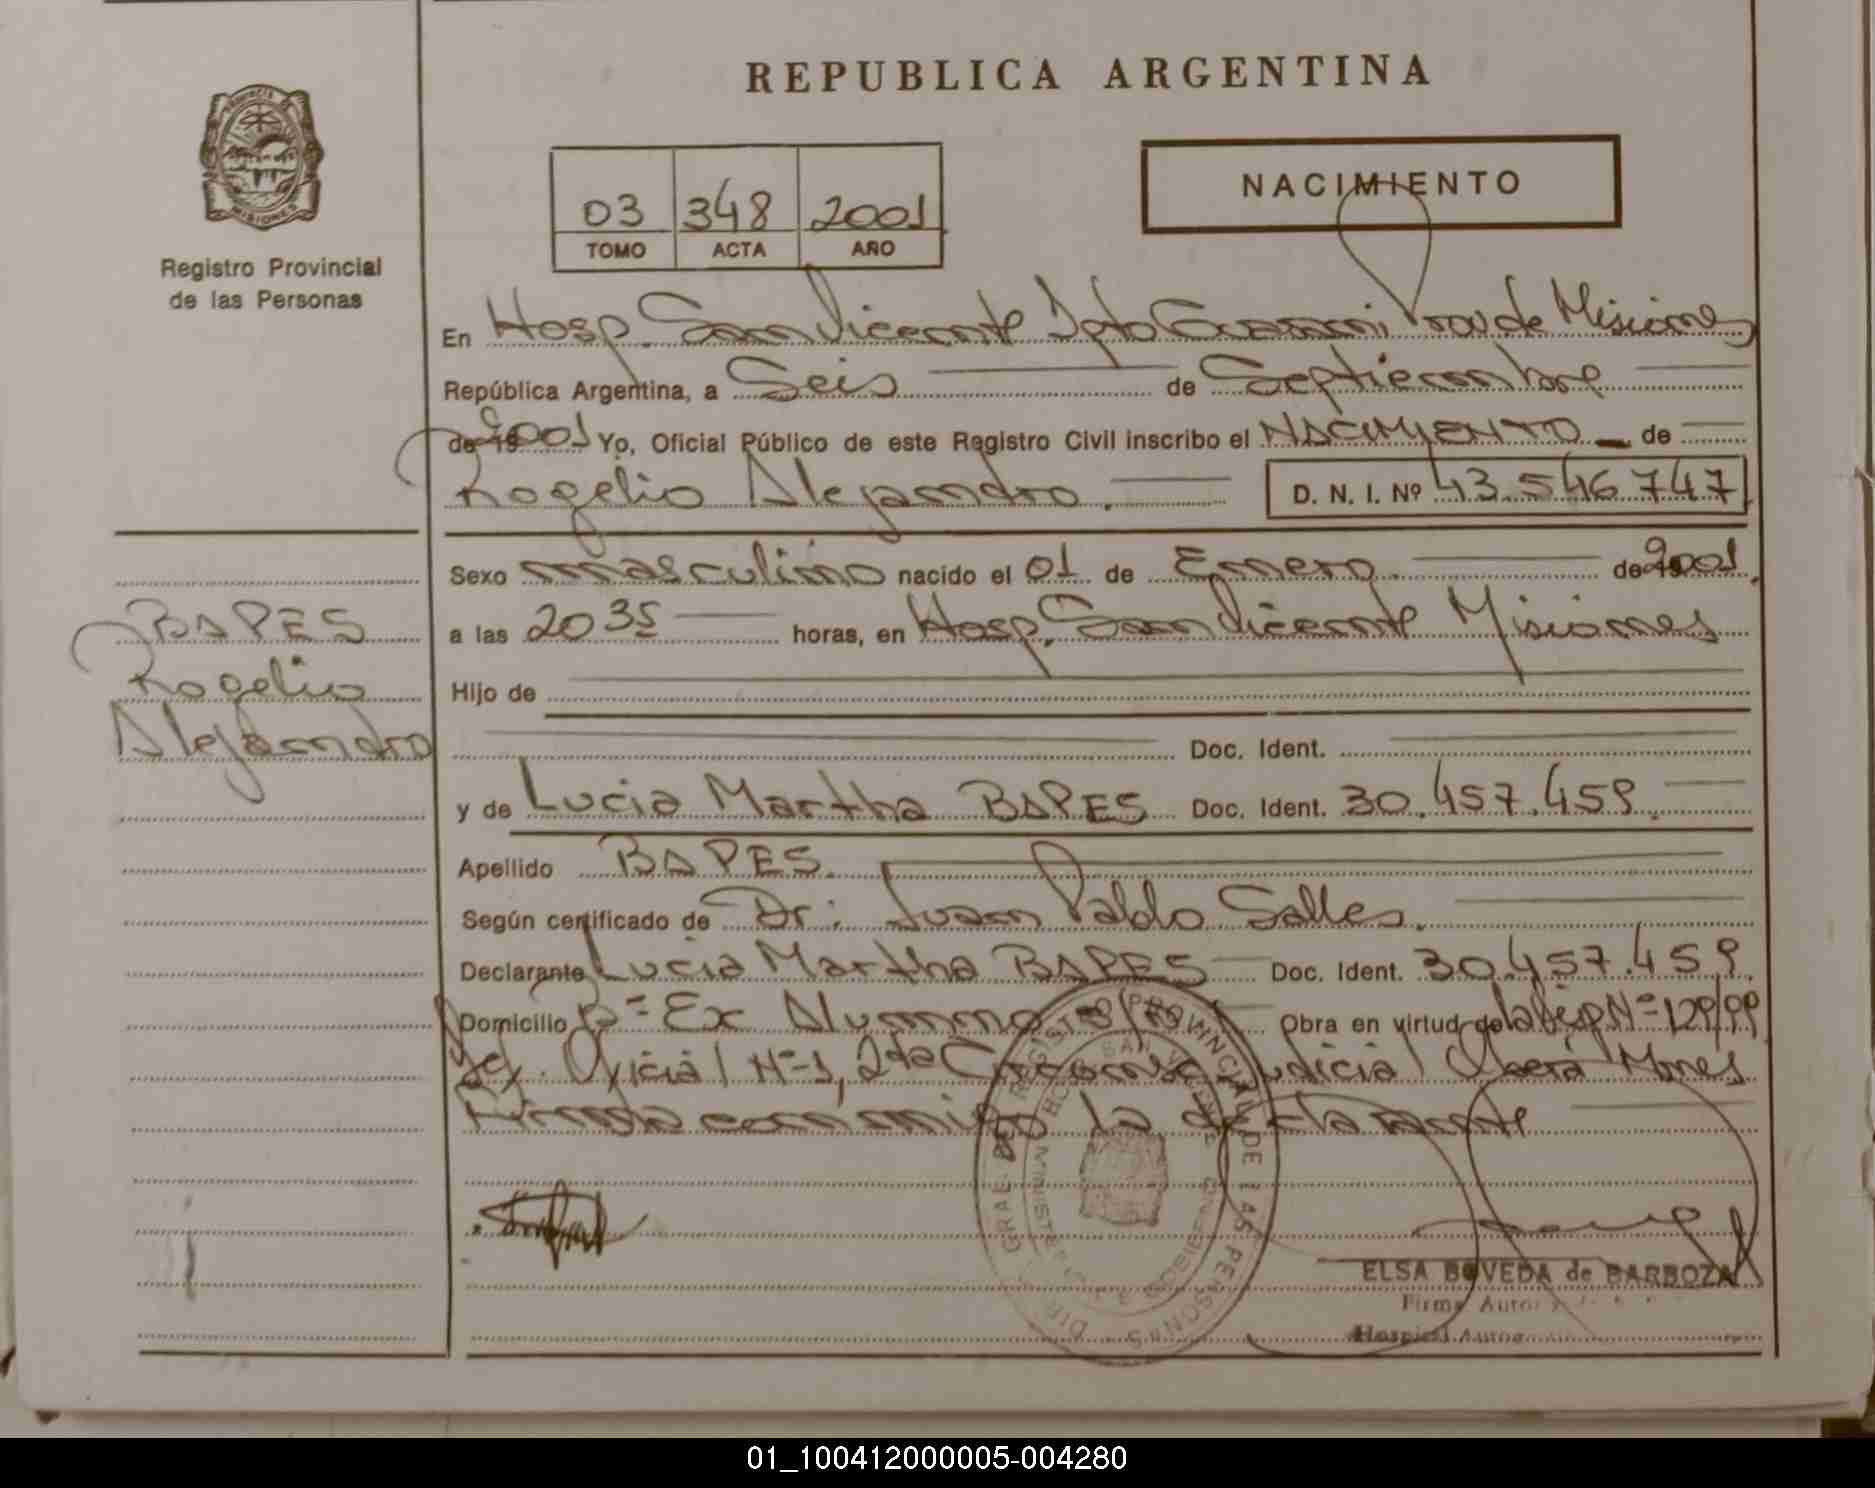 REPUBLICA ARGENTINA
PROVINCIA DE MISIONES
Registro Provincial
de las Personas
03 348 2001
TOMO ACTA AÑO
NACIMIENTO
En Hosp. San Vicente Dpto Guarani Prov de Misiones
República Argentina, a Seis de Septiembre
de 19 2001 Yo, Oficial Público de este Registro Civil inscribo el NACIMIENTO de
Rogelio Alejandro. D. N. I. Nº 43.546.747
Sexo masculino nacido el 01 de Enero de 19 2001.
a las 20 35 horas, en Hosp. San Vicente Misiones
Hijo de
Doc. Ident.
y de Lucia Martha BAPES Doc. Ident. 30.457.459.
Apellido BAPES.
Según certificado de Dr: Juan Pablo Salles.
Declarante Lucia Martha BAPES Doc. Ident. 30.457.459.
Domicilio Bº Ex Alumno Obra en virtud de la Nº 129/99
Oficial Nº 1, 2da Judicial Oberá Mnes
Firma conmigo la declarante
BAPES
Rogelio
Alejandro
REGISTRO PROVINCIAL DE LAS PERSONAS
ELSA BOVEDA de BARBOZA
01_100412000005-004280